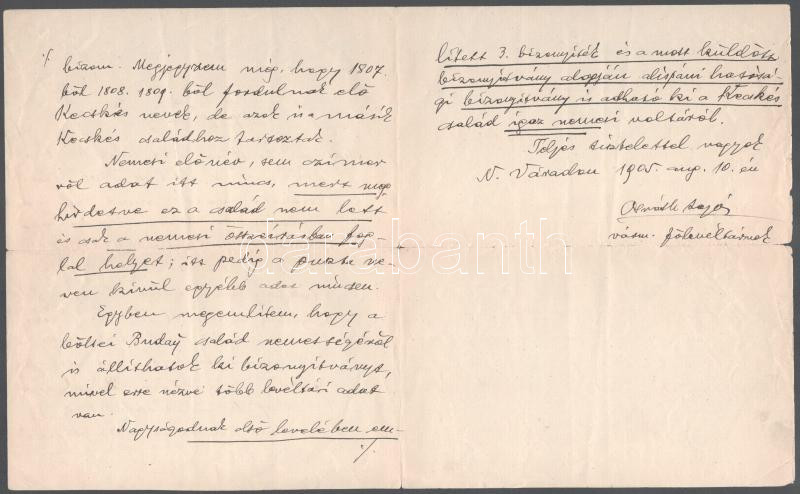 ./.
bizom. Megjegyzem még, hogy 1807.
ből 1808. 1809. ből fordulnak elő
Kecskés nevek, de azok is a másik
Kecskés családhoz tartoztak.
Nemesi előnév, sem czímer
ről adat itt nincs, mert meg
hirdetve ez a család nem lett
és csak a nemesi összeírásban fog-
lal helyet; itt pedig a puszta ne-
ven kívül egyébb adat nincsen.
Egyben megemlítem, hogy a
bölcsi Buday család nemességéről
is állíthatok ki bizonyítványt,
mivel erre nézve több levéltári adat
van.
Nagyságodnak első levelében em-
./.
lített 3. bizonyíték és a most küldött
bizonyítvány alapján alispáni hatósá-
gi bizonyítvány is adható ki a Kecskés
család igaz nemesi voltáról.
Teljes tisztelettel vagyok
N. Váradon 1905 aug. 10. én
várm. főlevéltárnok
darabanth